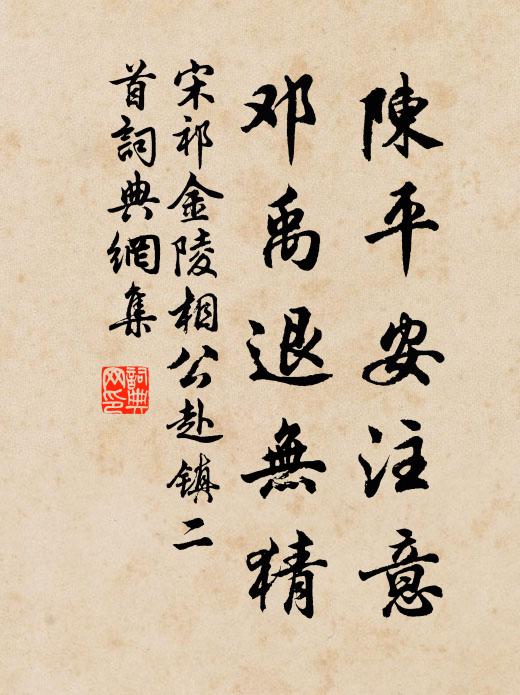 陳平安注意
邓禹退無猜
宋祁金陵相公赴镇二
首詞典網集
詞典網印